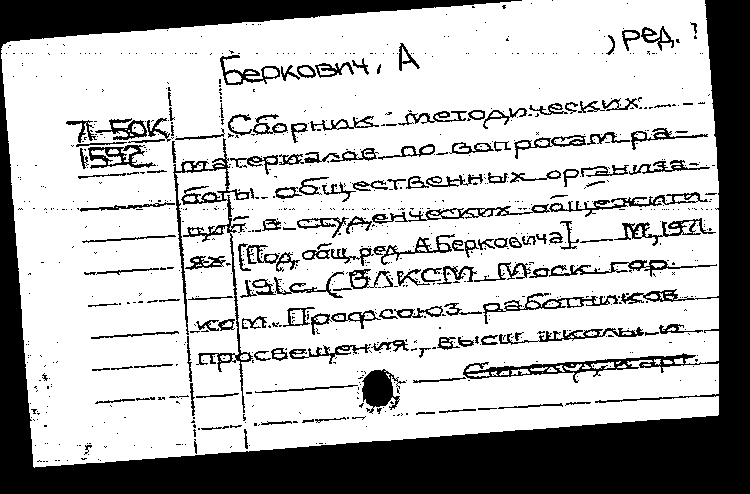 Беркович, А
, ред. ?
71-50К
1592
Сборник методических
материалов по вопросам ра-
боты общественных организа-
ций в студенческих общежити-
ях. [Под общ. ред. А.Берковича]. М., 1971.
191 с. (ВЛКСМ. Моск. гор.
ком. Профсоюз работников
просвещения, высш школы и
См. след. карт.